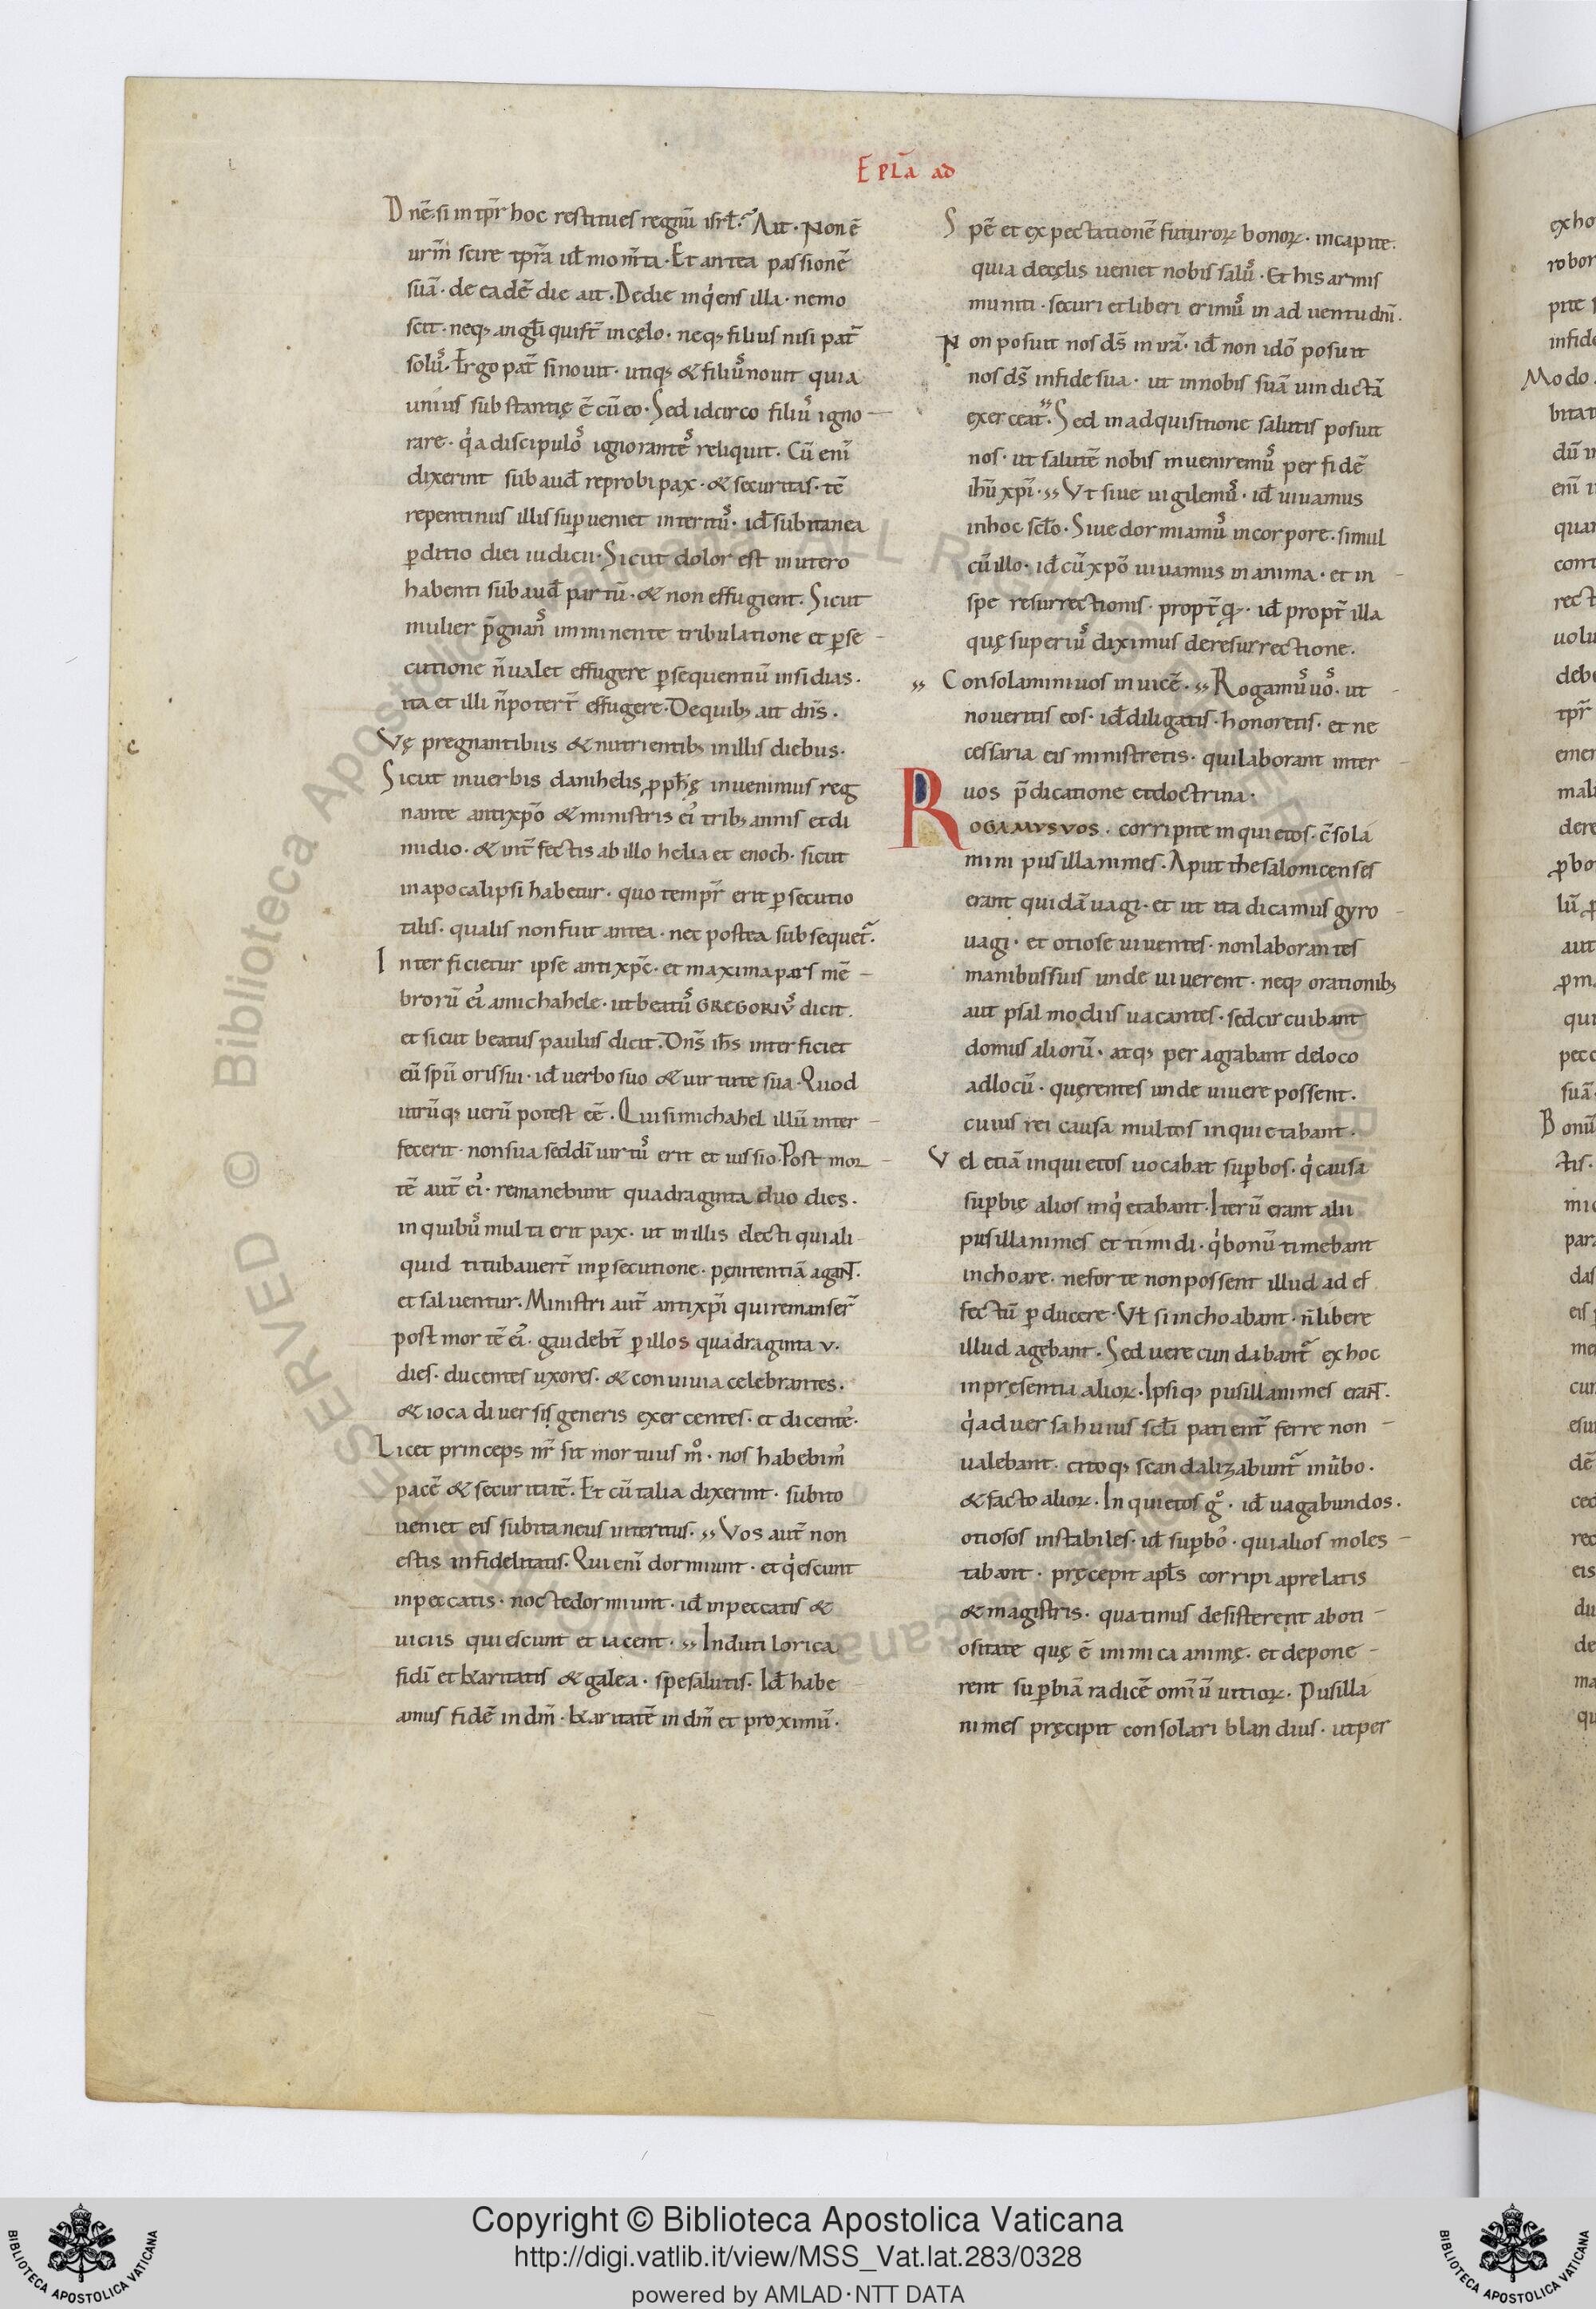 Epl̄a ad
Dnē·si in tp̄r hoc restitues regnū isrl̄·? Ait· Non ē
urm̄ scire tp̄ra ul̄ mom̄ta·Et antea passionē
suā·de eadē die ait·De die inqͥens illa·nemo
scit·neq; angl̄i qui s̄t in cęlo·neq; filius nisi pat̄
solus·Ergo pat̄ si nouit·utiq; & filius nouit quia
unius substantię ē cū eo·Sed idcirco filius igno
rare·qͥa discipulos ignorantes reliquit. Cū enī
dixerint subaud̄ reprobi pax·& securitas·tē
repentinus illis superueniet interitus·id̄ subitanea
ꝑditio diei iudicii·Sicut dolor est in utero
habenti subaud̄ partū·& non effugient. Sicut
mulier p̄gnans imminente tribulatione et ꝑse
cutione n̄ ualet effugere ꝑsequentiū insidias·
ita et illi n̄ potert̄ effugere·De quib; ait dn̄s·
Vę pregnantibus & nutrientib; in illis diebus·
Sicut in uerbis danihelis ꝓph̄ę inuenimus reg
nante antixp̄o & ministris ei᾽ trib; annis et di
midio·& int̄fectis ab illo helia et enoch·sicut
in apocalipsi habetur·quo tempr̄ erit ꝑsecutio
talis·qualis non fuit antea·nec postea subsequet̄·
Interficietur ipse antixp̄c·et maxima pars mē
brorū ei᾽ a michahele·ut beatus GREGORIVS dicit·
et sicut beatus paulus dicit·Dn̄s ih̄s interficiet
eū sp̄u oris sui·id̄ uerbo suo & uirtute sua·Quod
utrūq; uerū potest eē·Qui si michahel illū inter
fecerit·non sua sed dī uirtus erit et iussio·Post mor
tē aut̄ ei᾽·remanebunt quadraginta duo dies·
in quibus multi erit pax·ut in illis electi qui ali
quid titubauert̄ in ꝑsecutione·pęnitentiā agant̄·
et saluentur·Ministri aut̄ antixp̄i qui remanser̄
post mortē ei᾽·gaudebt̄ ꝑ illos quadraginta v·
dies·ducentes uxores·& conuiuia celebrantes·
& ioca diuersis generis exercentes·et dicente᾽·
Licet princeps nr̄ sit mortuus m°·nos habebim᾽
pacē & securitatē·Et cū talia dixerint·subito
ueniet eis subitaneus interitus·,, Vos aut̄ non
estis infidelitatis·Qui enī dormiunt·et qͥescunt
in peccatis·nocte dormiunt·id̄ in peccatis &
uiciis quiescunt et iacent·,, Induti lorica
fidī et karitatis & galea·spe salutis·Id̄ habe
amus fidē in dm̄·karitatē in dm̄ et proximū·
Spē et expectationē futuroꝝ bonoꝝ·in capite·
quia de cęlis ueniet nobis salus·Et his armis
muniti·securi et liberi erimus in aduentu dn̄i·
Non posuit nos ds̄ in irā·id̄ non idō posuit
nos ds̄ in fide sua·ut in nobis suā uindictā
exerceat·Sed in adquisitione salutis posuit
nos·ut salutē nobis inueniremus per fidē
ih̄u xp̄i·,, Vt siue uigilemus·id̄ uiuamus
in hoc scl̄o·Siue dormiamus in corpore·simul
cū illo·id̄ cū xp̄o uiuamus in anima·et in
spe resurrectionis·propt̄ qd̄·id̄ propt̄ illa
quę superius diximus de resurrectione.
,, Consolamini uos inuicē·,, Rogamus uos·ut
noueritis eos·id̄ diligatis·honoretis·et ne
cessaria eis ministretis·qui laborant inter
uos p̄dicatione et doctrina·
ROGAMVS VOS·corripite inquietos·c̄sola
mini pusillanimes·Aput thesalonicenses
erant quidā uagi·et ut ita dicamus gyro
uagi·et otiose uiuentes·non laborantes
manibus suis unde uiuerent·neq; orationib;
aut psalmodiis uacantes·sed circuibant
domus aliorū·atq; peragrabant de loco
ad locū·quęrentes unde uiuere possent·
cuius rei causa multos inquietabant·
Vel etiā inquietos uocabat suꝑbos·qͥ causa
suꝑbię alios inqͥetabant·Iterū erant alii
pusillanimes et timidi·qͥ bonū timebant
inchoare·ne forte non possent illud ad ef
fectū ꝑducere·Vl̄ si inchoabant·n̄ libere
illud agebant·Sed uerecundabant̄ ex hoc
in pręsentia alioꝝ·Ipsiq; pusillanimes erant̄·
qͥ aduersa huius scl̄i patient̄ ferre non
ualebant·citoq; scandalizabunt̄ in ūbo·
& facto alioꝝ·Inquietos g°·id̄ uagabundos·
otiosos instabiles·ul̄ suꝑbo᾽·qui alios moles
tabant·pręcepit apl̄s corripi a prelatis
& magistris·quatinus desisterent ab oti
ositate quę ē inimica animę·et depone
rent suꝑbiā radicē omīū uitioꝝ·Pusilla
nimes pręcipit consolari blandius·ut per
c
exho
robor
pite
infide
Modo
bitat
dū
enī
quar
cont
rect
uolu
debe
tp̄r
emer
mali
dere
ꝓbo
lū
aut
ꝑm
qui
pecc
suā
Bonū
tis·
mi
par
das
eis
me
cur
esu
dē
ced
rec
eis
du
de
ma
qu
Copyright © Biblioteca Apostolica Vaticana
http://digi.vatlib.it/view/MSS_Vat.lat.283/0328
powered by AMLAD·NTT DATA
BIBLIOTECA APOSTOLICA VATICANA
BIBLIOTECA APOSTOLICA VATICANA